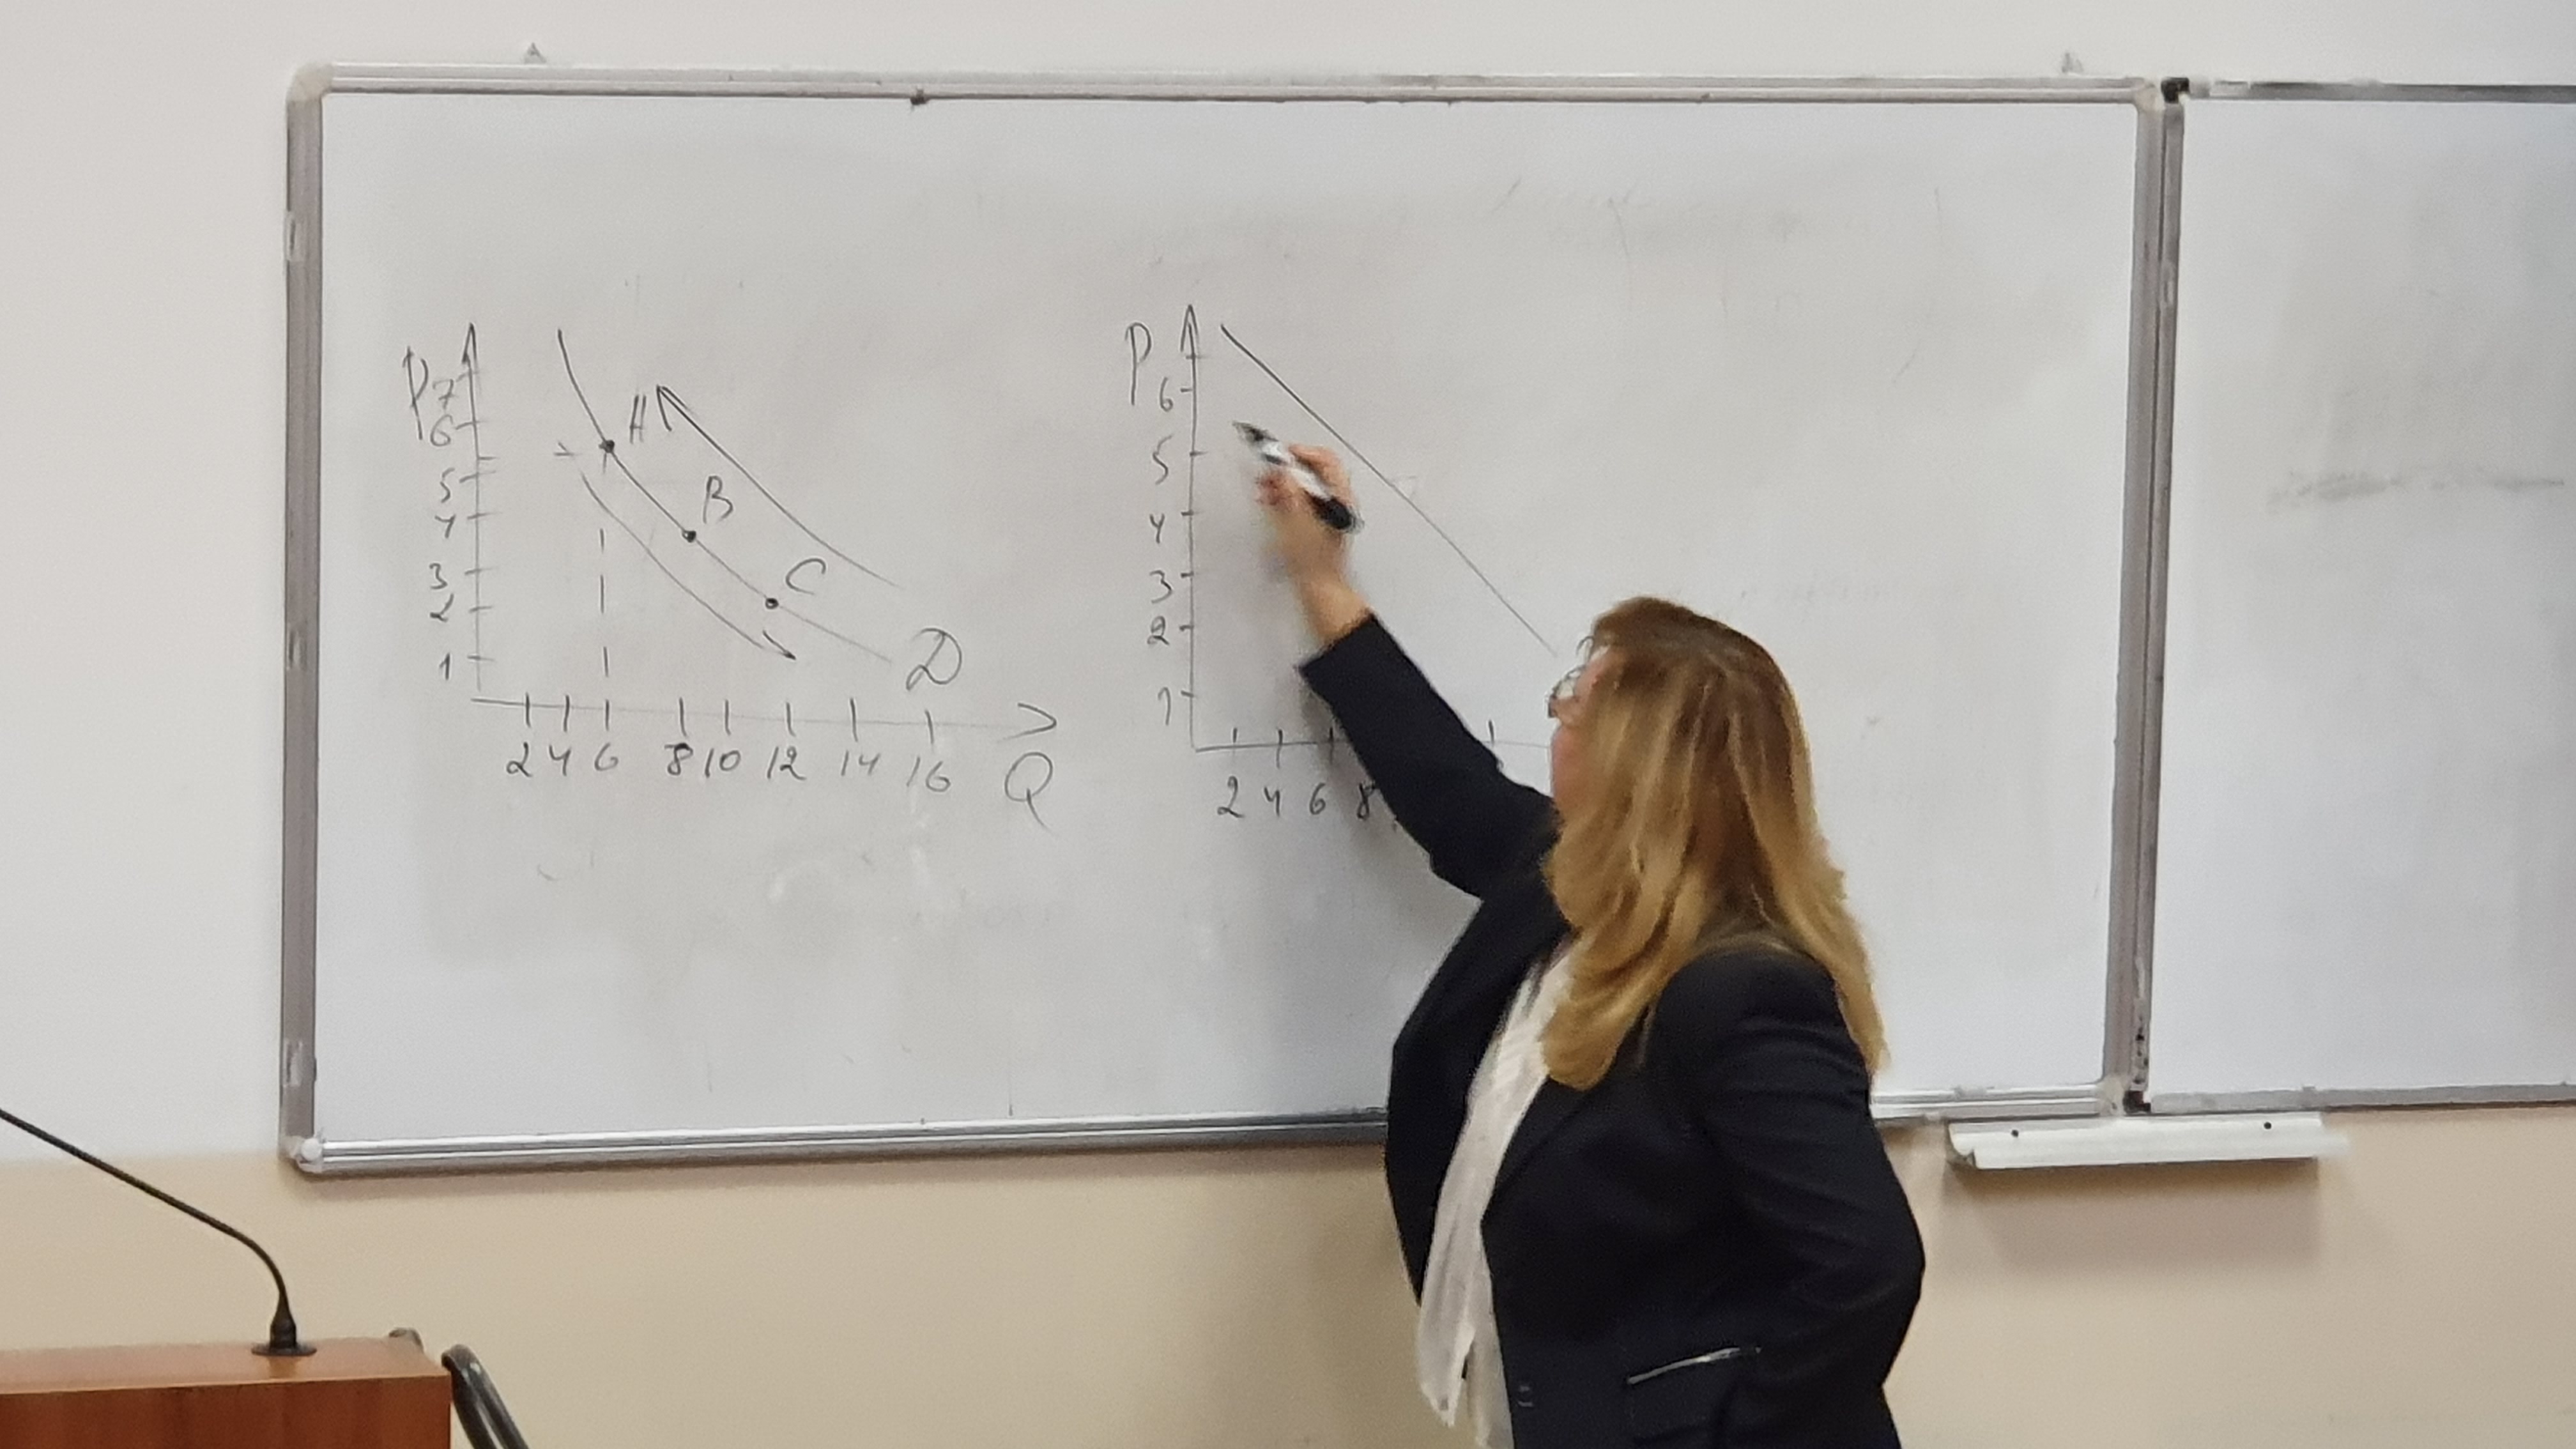 P
7
6
5
4
3
2
1
A
B
C
D
2 4 6 8 10 12 14 16
Q
P
6
5
4
3
2
1
2 4 6 8